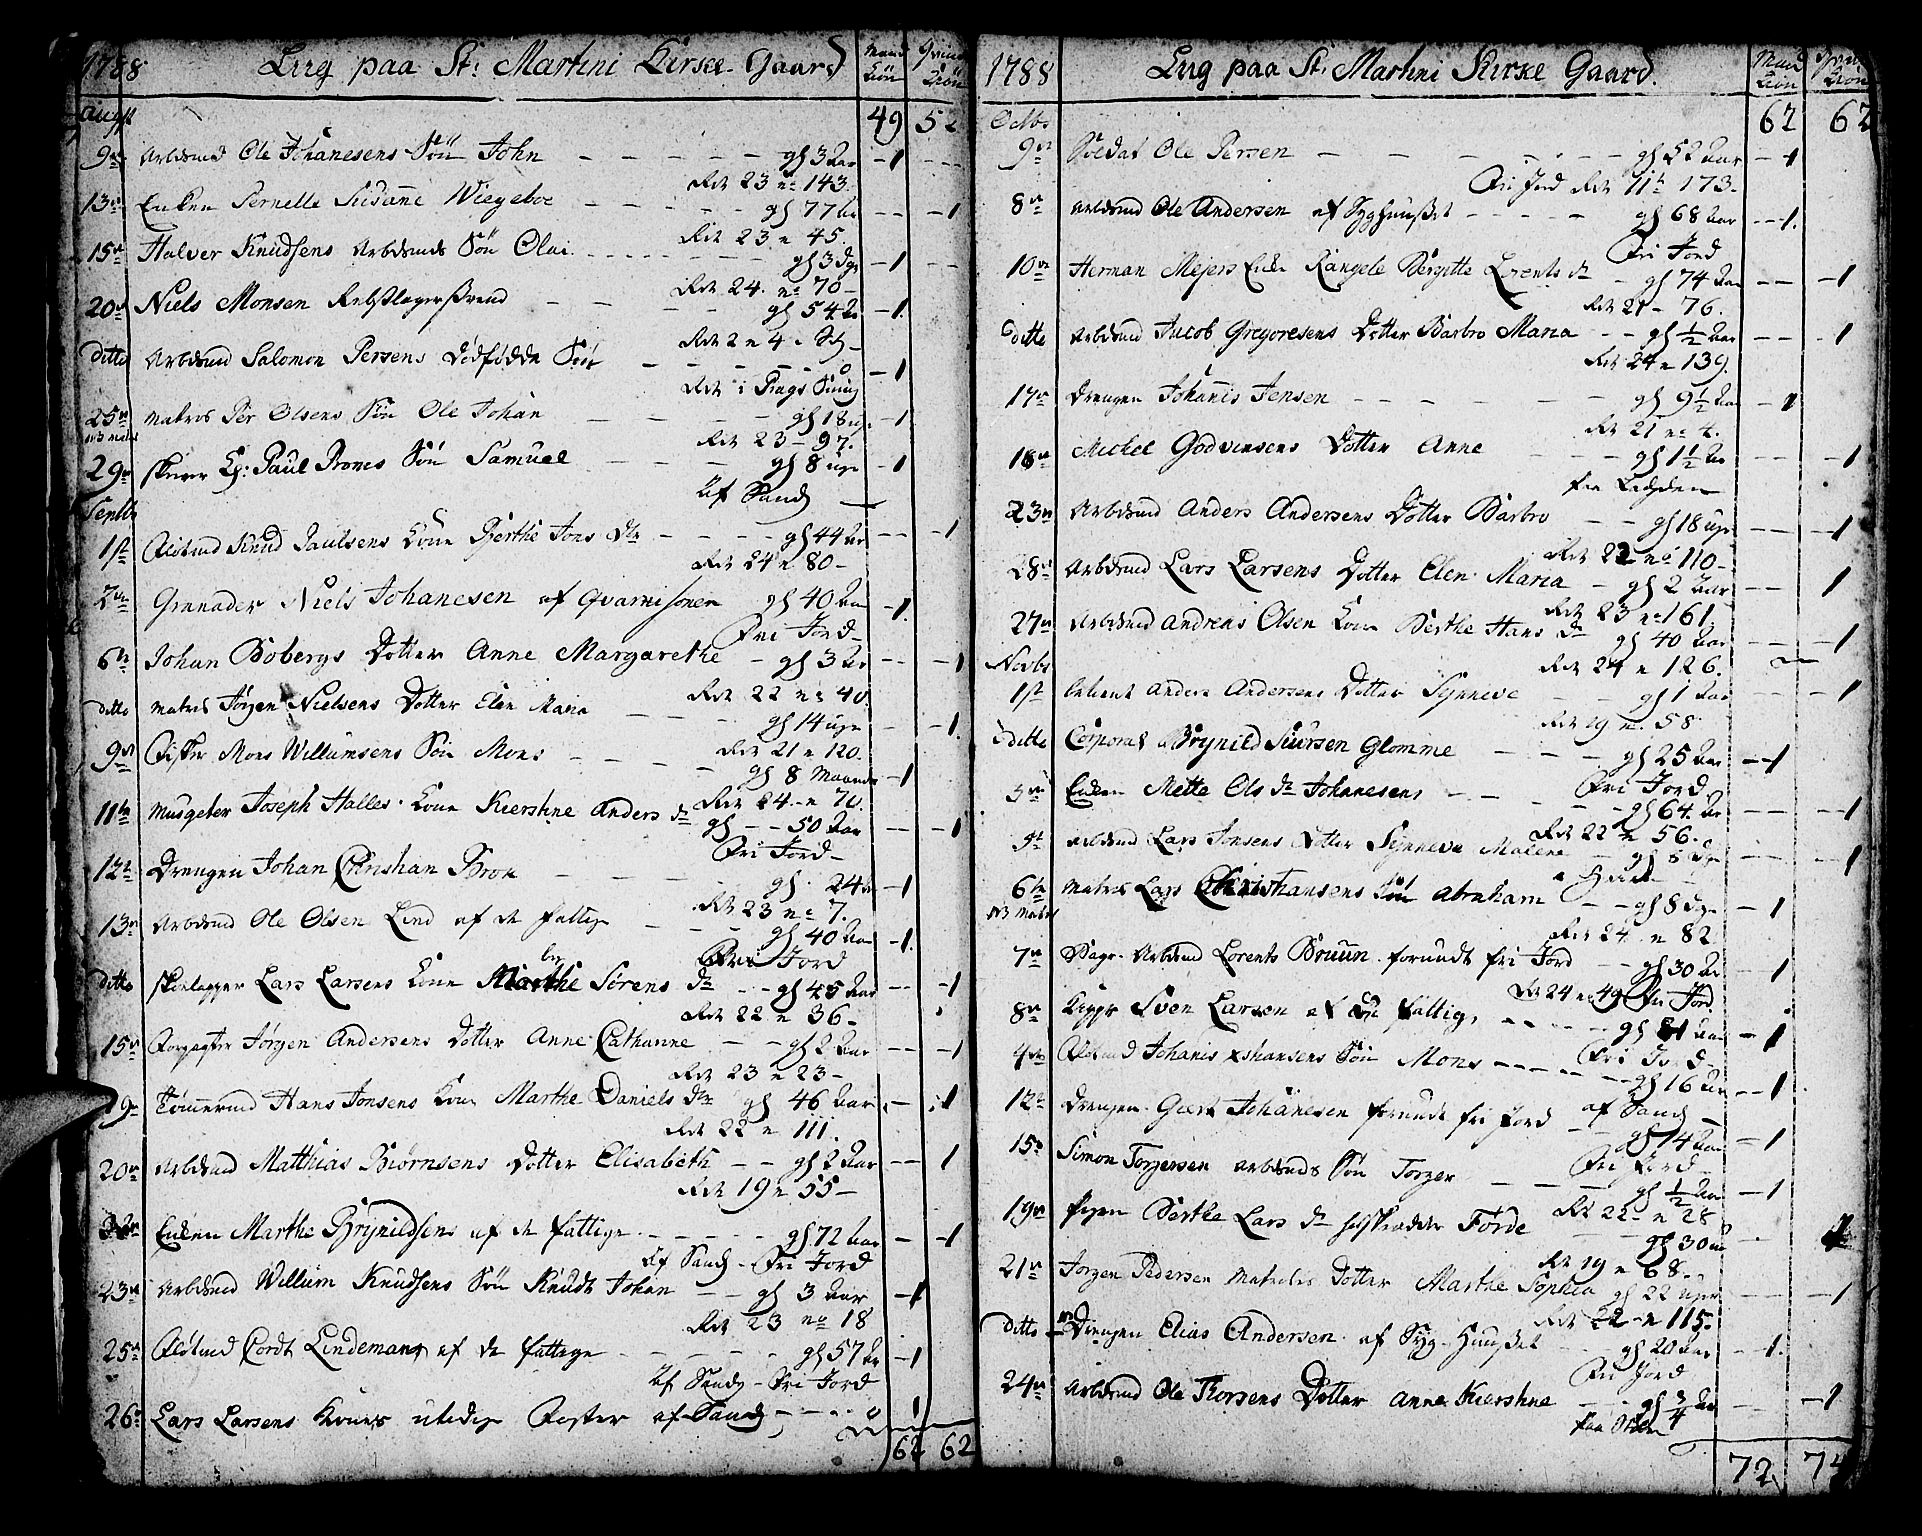 1788 Liig paa St: Martini Kirke-Gaard Mand Kiön Qvinde Kiön
Augst 49 52
9de Arbdsmd Ole Johanesens Sön John gl 3 Aar 1
Ret 23 no 143
13de Enken Pernelle Susanne Wiegeboe gl 77 Aar 1
Ret 23 n 45
15de Halver Knudsens Arbdsmds Sön Olai gl 3 dge 1
Ret 24 no 70
20de Niels Monsen Rebslager gl 54 Aar 1
Ret 2 n 4
ditto Arbdsmd Salomon Persens Dödfödde Sön 0 1
25de Matros Per Olsens Sön Ole Johan gl 18 u. 1
NB Matros Ret 23 - 97.
29de Paul Sön Samuel gl 8 uger 1
Af Sand
Septbr
1st Flötmd Knud Paulsens Kone Berthe Jons dtr gl 44 Aar 1
Ret 24 n 80
2den Grenader Niels Johanesen af Gvarnisonen gl 40 Aar 1.
Fri Jord
6te Johan Bobergs Dotter Anne Margarethe gl 3 Aar 1
Ret 22 no 40
ditto Matros Jörgen Nielsens Dotter Elen Maria gl 14 uge 1
Ret 21 n 120.
9de Fisker Mons Willumsens Sön Mons gl 8 Maander 1
Ret 24 n 70.
11te Musqeter Joseph Halles Kone Kierstine Anders dtr gl 50 Aar 1
Fri Jord
12te Drengen Johan Christian Brok gl 24 Aar 1
Ret 23 no 7.
13de Arbdsmd Ole Olsen Lind af de fattige gl 40 Aar 1.
Fri Jord
ditto Skoelapper Lars Larsens Kone Marthe Sörens dtr gl 45 Aar 1
Ret 22 n 36
15de Jörgen Andersens Dotter Anne Cathrine gl 2 Aar 1
Ret 23 n 23
19de Tömermd Hans Jonsens Kone Marthe Daniels dtr gl 46 Aar 1
Ret 22 n 111.
20de Arbdsmd Matthias Biörnsens Dotter Elisabeth gl 2 Aar 1
Ret 19 n 55
Enken Marthe Brynildsens af de fattige gl 72 Aar 1
Af Sand - Fri Jord
23de Arbdsmd Willum Knudsens Sön Knudt Johan gl 3 Aar 1
Ret 23 no 18
25de Flötmd Cordt Lindeman af de fattige gl 57 Aar 1
Af Sand - Fri Jord
26de Lars Larsens Kones Foster af Sand 0 1
62 62
1788 Liig paa St: Martini Kirke Gaard. Mand Kiön Qvinde Kiön
Octbr 62 62
9de Soldat Ole Persen gl 52 Aar 1
Fri Jord Ret 11te 173
8de Arbdsmd Ole Andersen af Syghuuset gl 68 Aar 1.
Fri Jord
10de Herman Mejers Enke Rangele Bergitte Lorents dtr gl 74 Aar 1
Ret 21 - 76.
ditto Arbdsmd Jacob Gregoresens Dotter Barbro Maria gl 1/2 Aar 1
Ret 24 n 139.
17de Drengen Johanis Jensen gl 9 1/2 Aar 1
Ret 21 no 4.
18de Michel Godvinsens Dotter Anne gl 1 1/2 Aar 1
23de Arbdsmd Anders Andersens Dotter Barbro gl 18 uger 1
Ret 22 no 110
28de Arbdsmd Lars Larsens Dotter Elen Maria gl 2 Aar 1
Ret 23 no 161.
27de Arbdsmd Andreas Olsen Kone Berthe Hans dtr gl 40 Aar 1
Novbr Ret 24 n 126.
1st Anders Andersens Dotter Synneve gl 1 Aar 1
Ret 19 n 58
ditto Corporal Brynild Siursen Glomme gl 25 Aar 1
Fri Jord
Enken Mette Ols dtr Johanesens gl 64 Aar 1
Ret 22 n 56.
Arbdsmd Lars Jonsens Dotter Synneve Malene gl 8 dge 1
6te Matros Lars Christiansens Sön Abraham gl 8 dge 1
NB Matros Ret 24 n 82
7de Arbdsmd Lorents Bruun forundt fri Jord gl 30 Aar 1
Ret 24 n 49 Fri Jord
8de Sven Larsen af de fattige gl 81 Aar 1
Fri Jord
4de Flötmd Johanis Sön Mons gl 16 Aar 1
af Sand
12te Drengen Giert Johanesen forundt fri Jord gl 14 Aar 1
Fri Jord
15de Simon Torgersen Arbdsmds Sön Torger gl 1/2 Aar 1
Ret 22 n 28
19de Pigen Berthe Lars dtr Förde gl 30 Aar 1
Ret 19 n 68.
21de Jörgen Pedersen Matroses Dotter Marthe Sophia gl 22 uger 1
Ret 22 n 115.
ditto Drengen Elias Andersen af Syg-Huuset gl 20 Aar 1.
Fri Jord
24de Arbdsmd Ole Thorsens Dotter Anne Kierstine gl 3/4 Aar 1
72 74